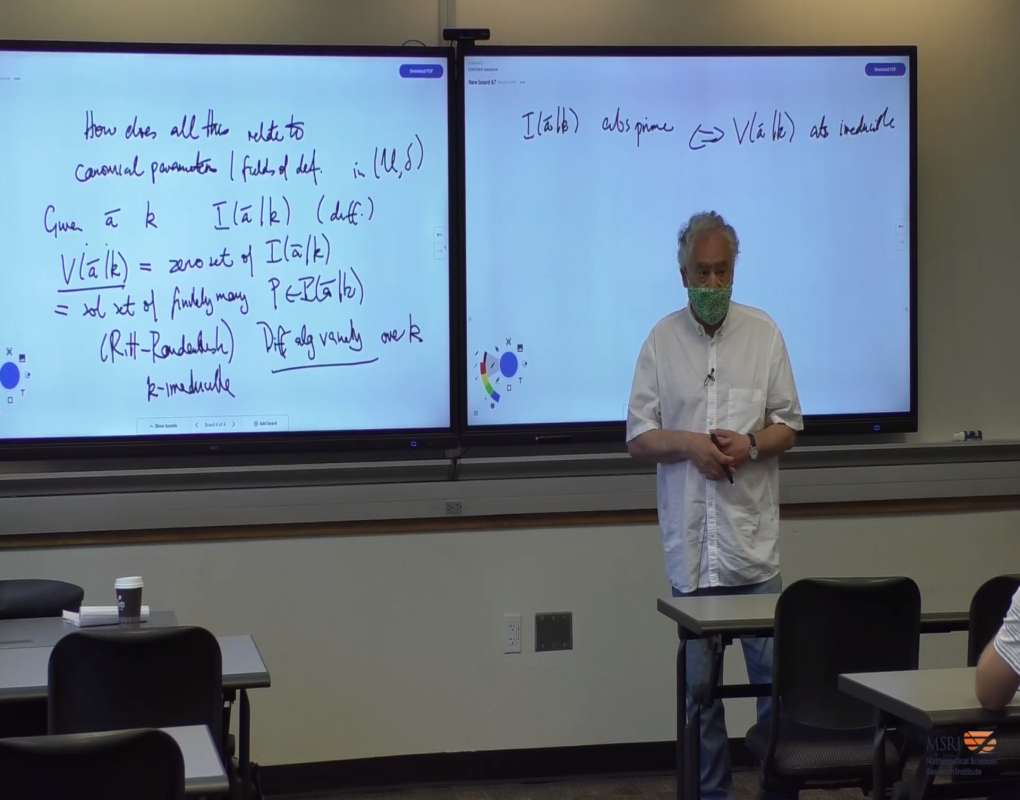 Download PDF
How does all this relate to
canonical parameters / fields of def. in (U, δ)
Given ā k I(ā/k) (diff.)
V(ā/k) = zero set of I(ā/k)
= sol set of finitely many P ∈ I(ā/k)
(Ritt-Raudenbush) Diff alg variety over k
k-irreducible
Show boards
Board 4 of 4
Add board
Untitled session
New board 67
Download PDF
I(ā/k) abs prime ⇔ V(ā/k) abs irreducible
MSRI
Mathematical Sciences
Research Institute